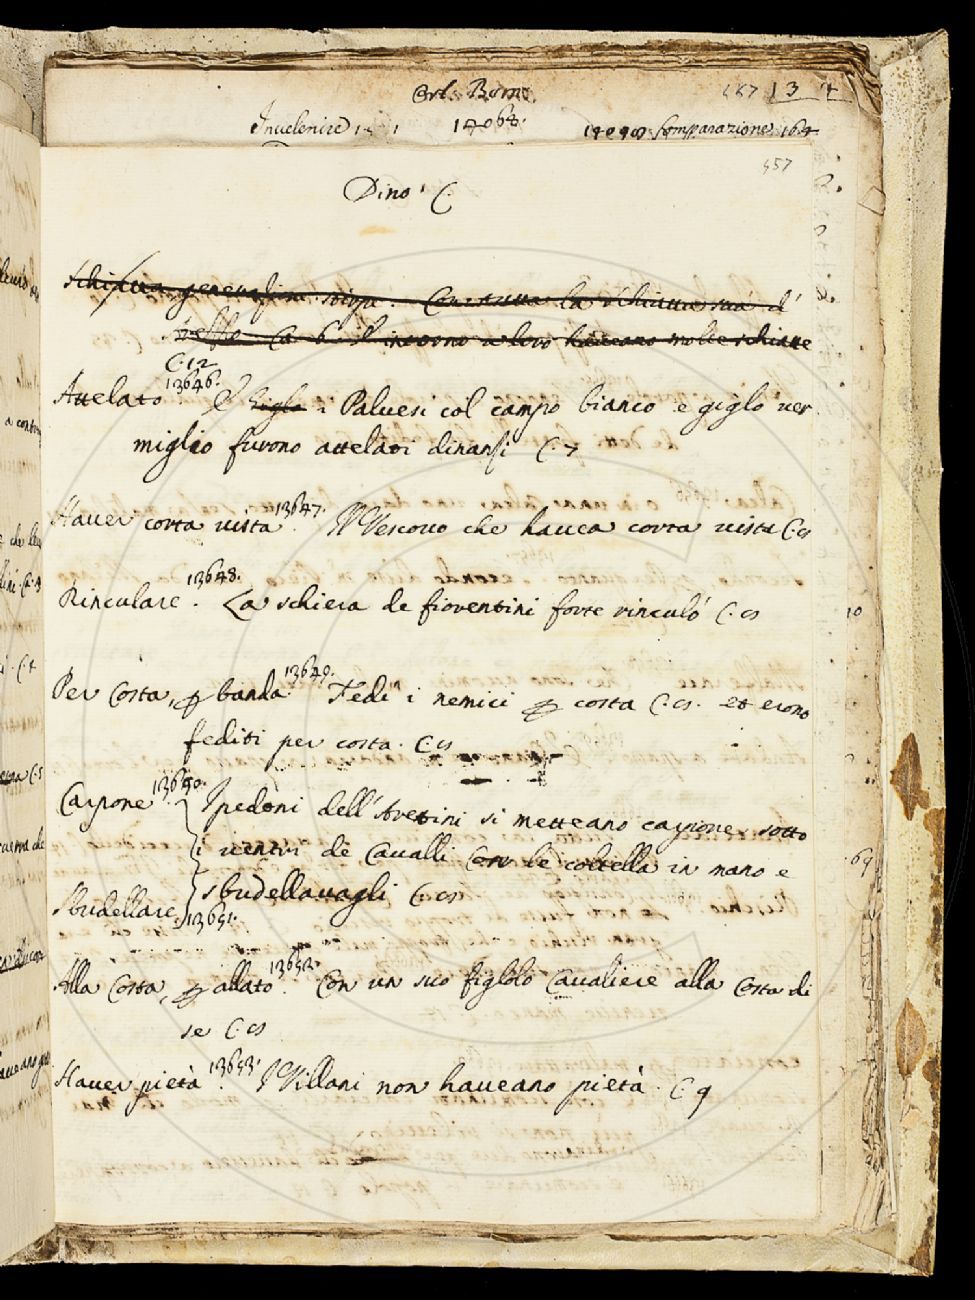 Orl. Born.
157 13
Invelenire 14068. 14098 Comparazione 164
457
Dino C.
Schiatta generassione stirpe. Con tutta la schiatta sua d'
C. 6. haveano molte schiatte
C. 12
Attelato 13646. E Giglo i Palvesi col campo bianco e giglo ver
miglio furono attelati dinansi C. 7
Haver corta vista 13647. Il Vescovo che havea corta vista C. cs
Rinculare. 13648. La schiera de fiorentini forte rinculò C. cs
10
Per Costa, p banda 13649. Fedir i nemici p costa C. cs. et erono
fediti per costa. C. cs
Carpone 13650. I pedoni dell'Aretini si metteano carpone sotto
i ventri de Cavalli con le coltella in mano e
69
sbudellavagli C. cs
Sbudellare 13651.
Alla Costa, p allato 13652. Con un suo figlolo Cavaliere alla Costa di
se C. cs
Haver pietà 13653. I Villani non haveano pietà. C. 9